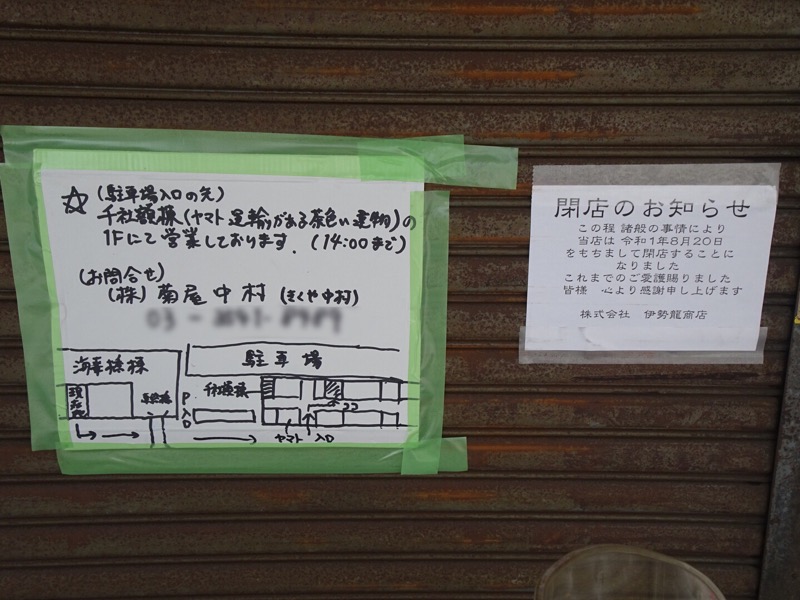 ☆ (駐車場入口の先)
千社額様(ヤマト運輸がある茶色い建物)の
1Fにて営業しております。(14:00まで)
(お問合せ)
(株) 菊屋中村 (きくや中村)
海幸橋様
駐車場
現在地
千社額様
P入口
ココ
ヤマト
入口
閉店のお知らせ
この程 諸般の事情により
当店は 令和1年8月20日
をもちまして閉店することに
なりました
これまでのご愛護賜りました
皆様 心より感謝申し上げます
株式会社 伊勢龍商店